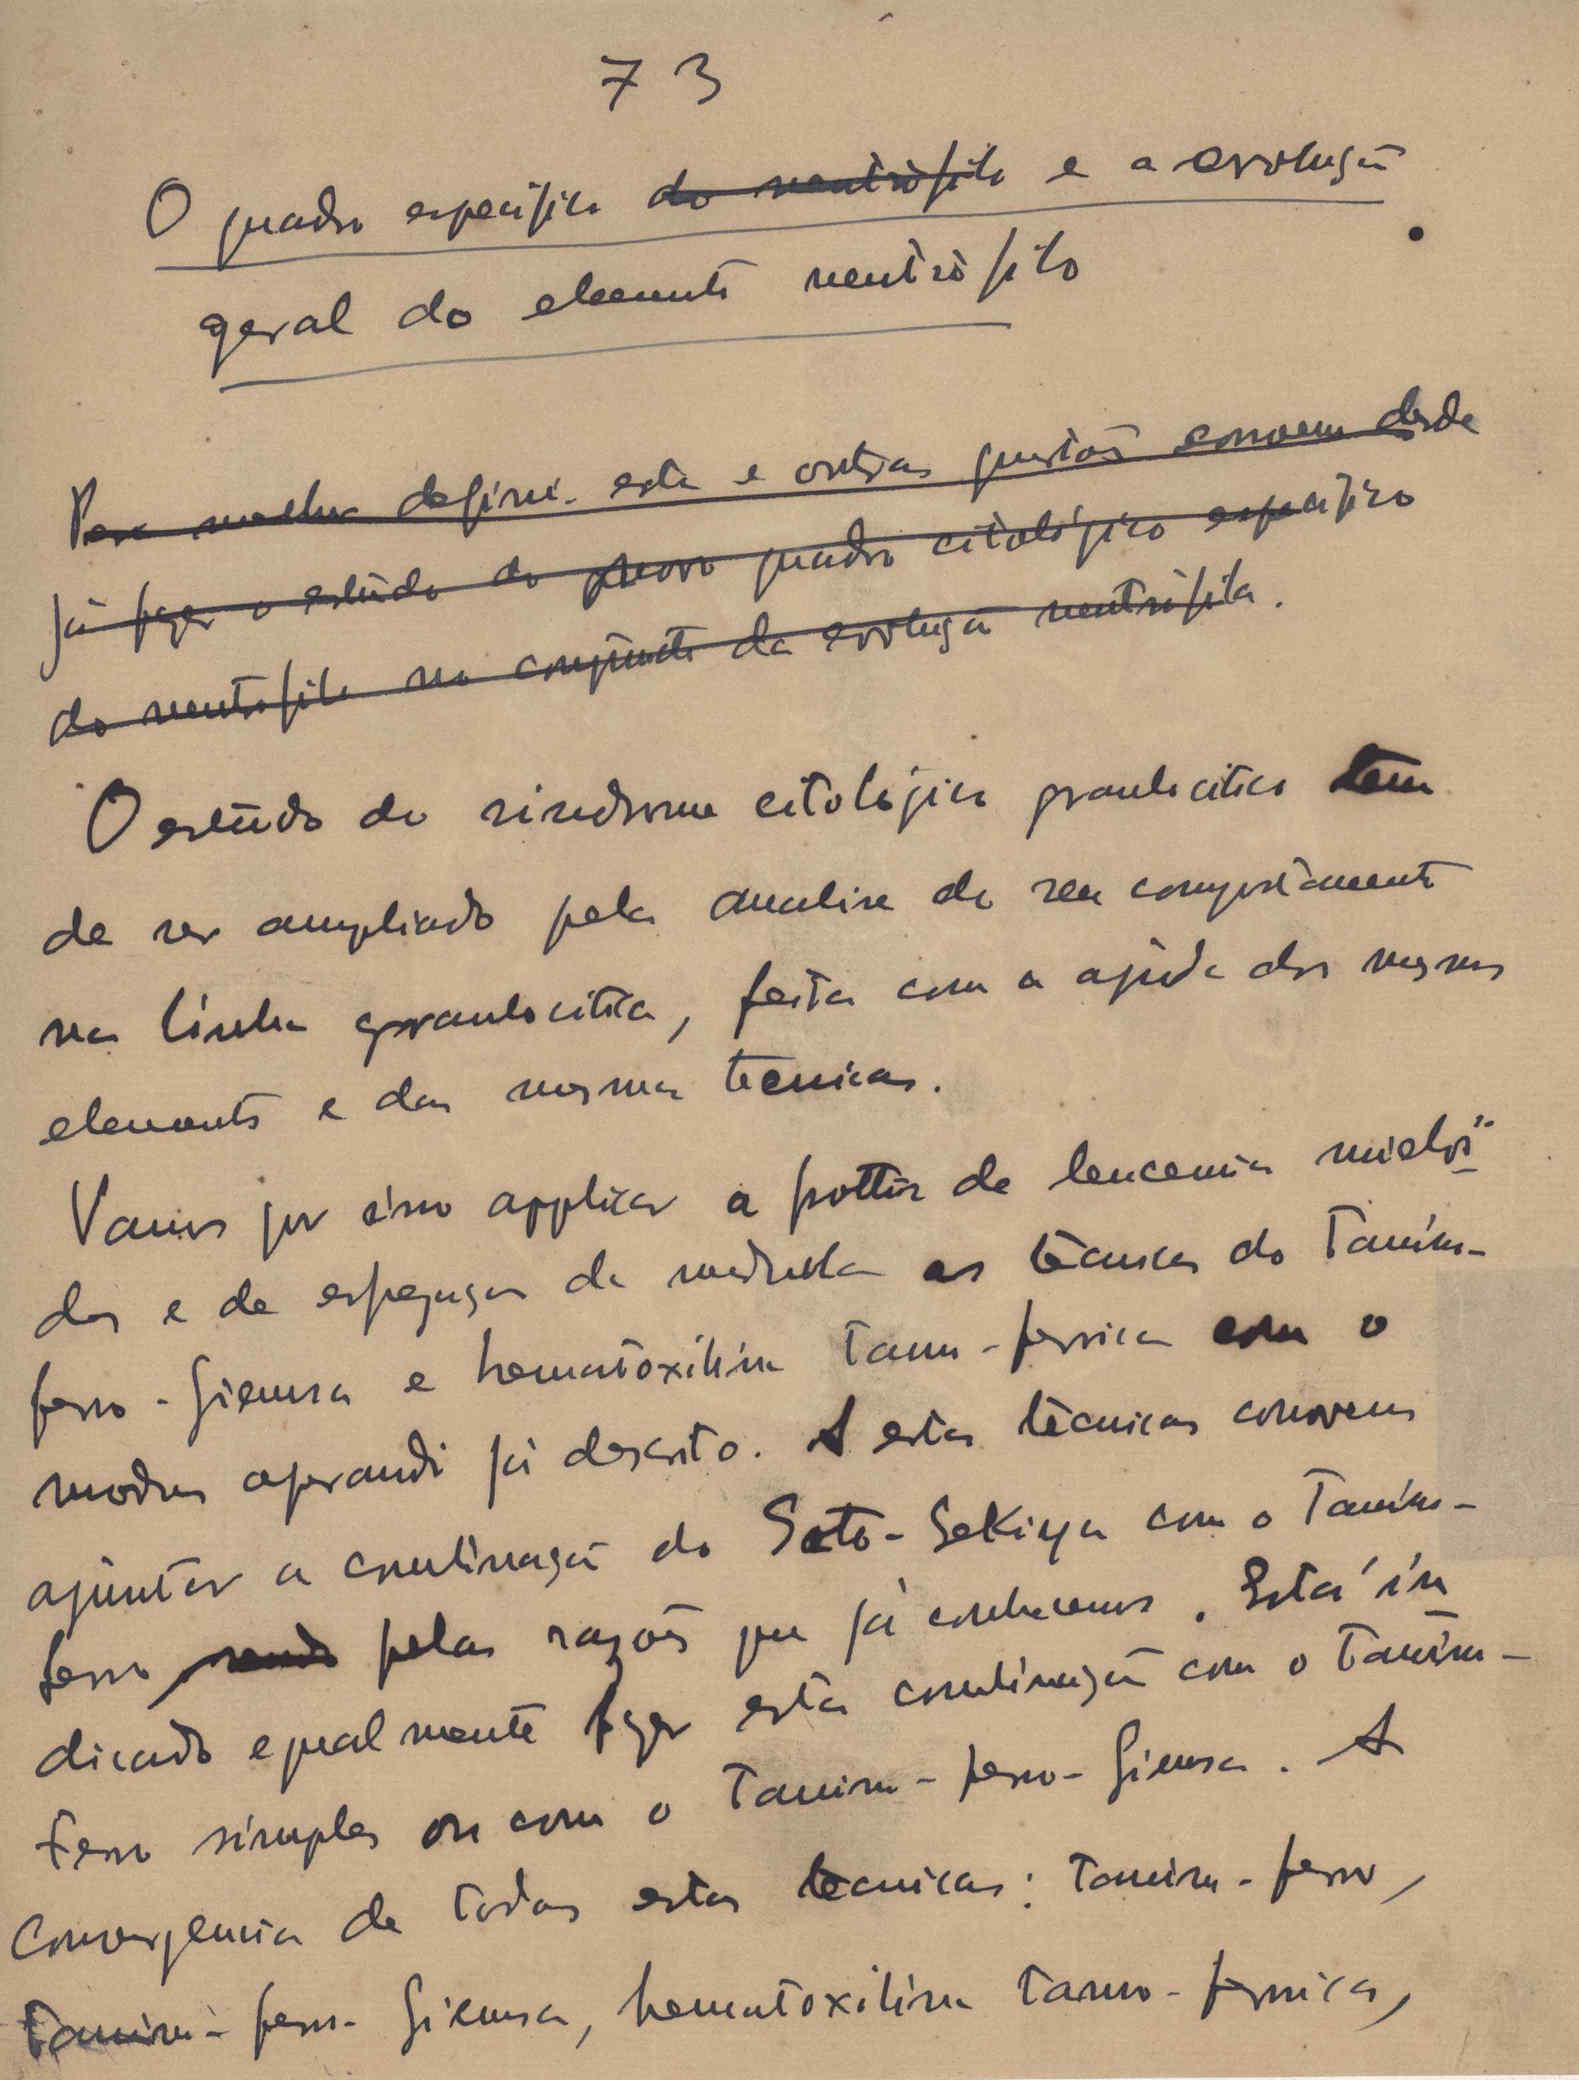 73
O quadro especifico do neutrófilo e a evolução
geral do elemento neutrófilo
Para melhor definir esta e outras questões convem desde
já fazer o estudo do novo quadro citológico especifico
do neutrofilo no conjuncto da evolução neutrófila.
O estudo do sindrome citológico granulocitico tem
de ser ampliado pela analise do seu comportamento
na linha granulocitica, feita com a ajuda dos mesmos
elementos e das mesmas tecnicas.
Vamos por isso applicar a frottis de leucemia mieloi-
des e de esfregaços de medulla as técnicas do Tanino-
ferro-Giemsa e hematoxilina tanno-ferrica com o
modus operandi já descrito. A estas técnicas convem
ajuntar a combinação do Sato-Sekiya com o Tanino-
ferro pelas razões que já conhecemos. Está in
dicado egualmente fazer esta combinação com o Tanino-
ferro simples ou com o Tanino-ferro-Giemsa. A
convergencia de todas estas tecnicas: Tanino-ferro,
Tanino-ferro-Giemsa, hematoxilina tanno-ferrica,